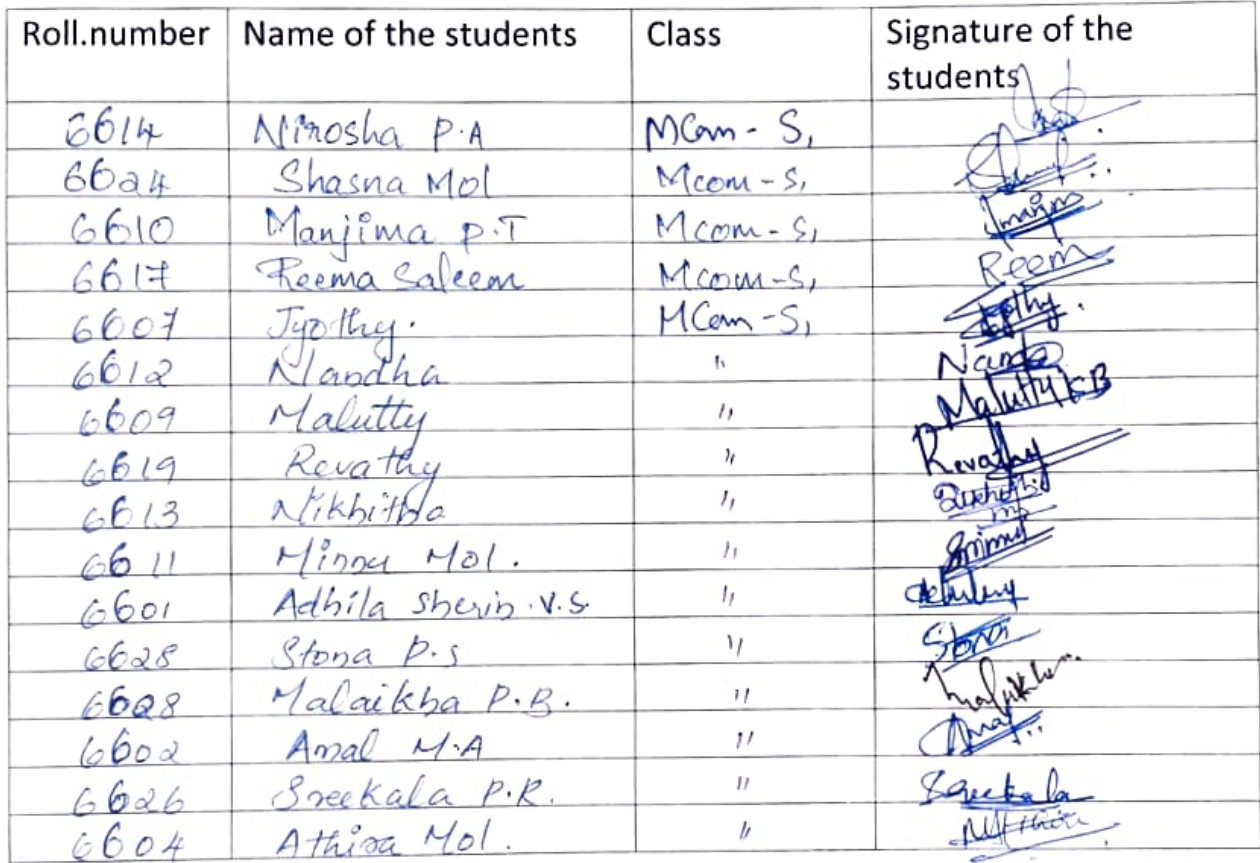 Roll.number Name of the students Class Signature of the students
6614 Nirosha P.A MCom - S,
6624 Shasna Mol Mcom - S,
6610 Manjima P.T Mcom - S,
6617 Reema Saleem Mcom - S, Reem
6607 Jyothy. MCom - S,
6612 Nandha " Nanda
6609 Malutty " Malutty KB
6619 Revathy " Revathy
6613 Nikhitha "
6611 Minnu Mol. "
6601 Adhila Sherin.V.S. "
6628 Stona P.S " Stona
6628 Malaikha P.B. "
6602 Amal M.A " Amal
6626 Sreekala P.R. " Sreekala
6604 Athira Mol. "